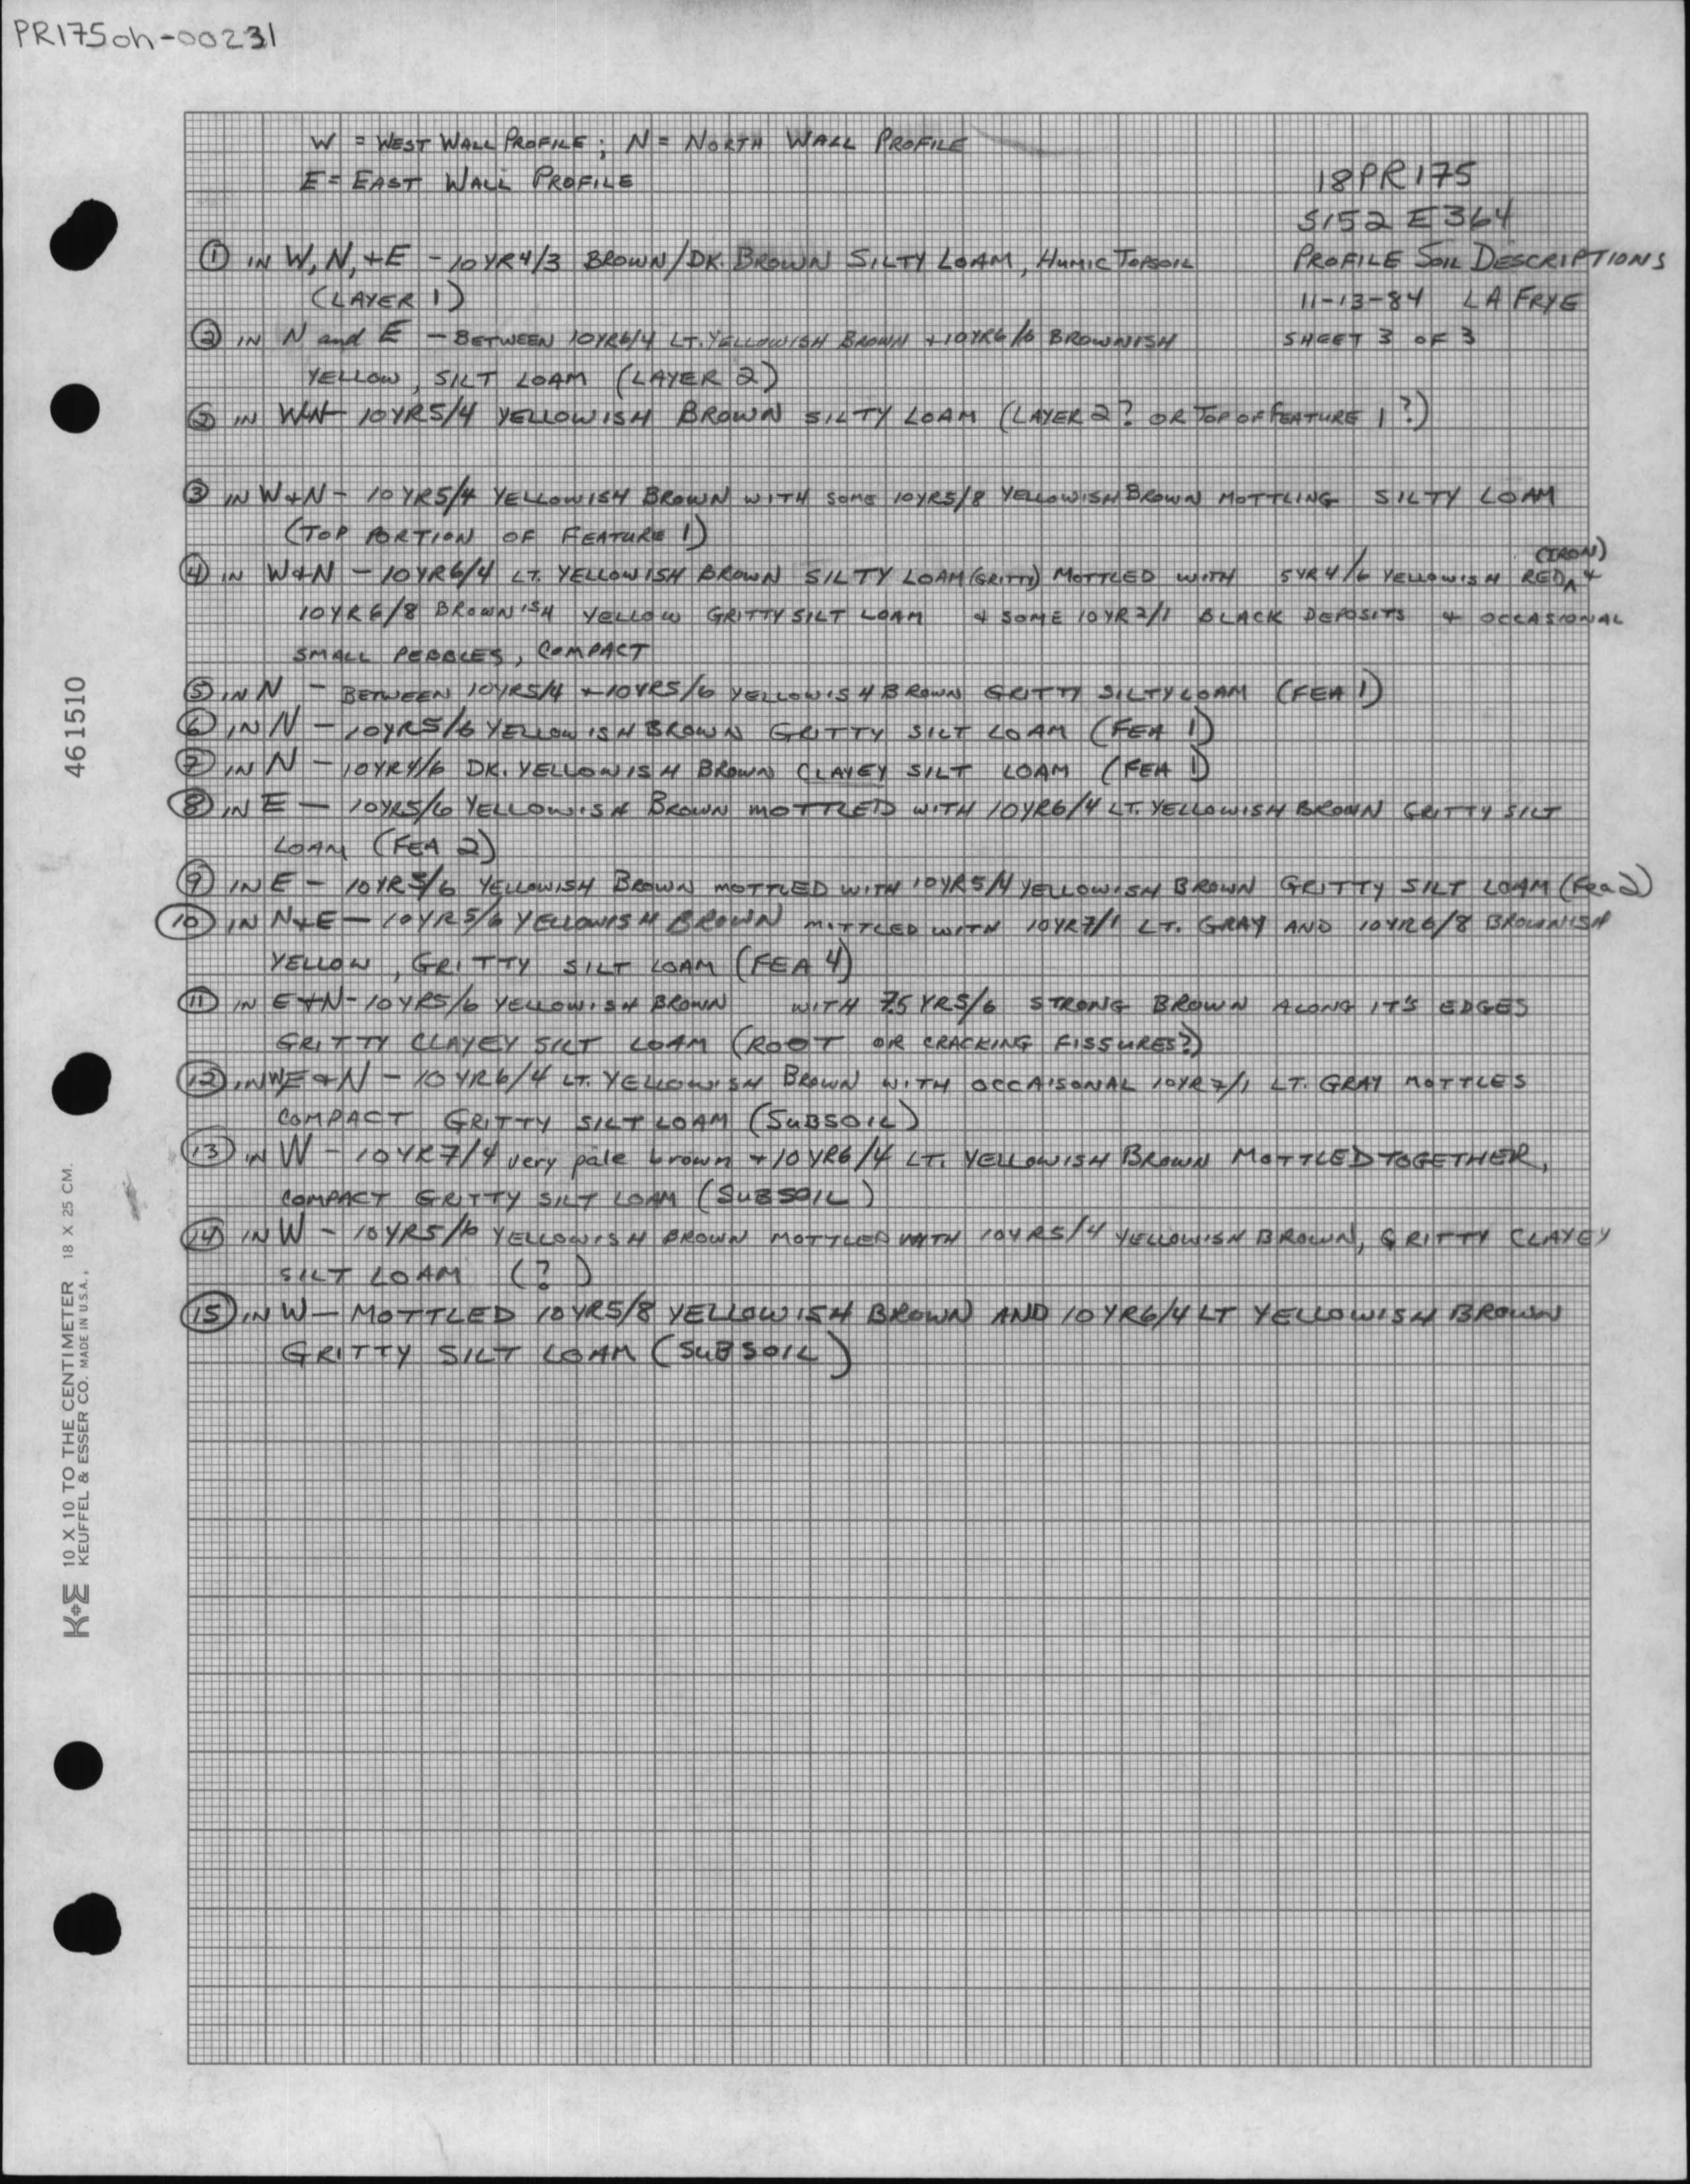 PR175oh-00231
W = WEST WALL PROFILE; N = NORTH WALL PROFILE
E = EAST WALL PROFILE
18PR175
S152 E364
PROFILE SOIL DESCRIPTIONS
11-13-84 LA FRYE
SHEET 3 OF 3
① IN W, N, + E - 10YR4/3 BROWN/DK. BROWN SILTY LOAM, HUMIC TOPSOIL
(LAYER 1)
② IN N and E - BETWEEN 10YR6/4 LT. YELLOWISH BROWN + 10YR6/6 BROWNISH
YELLOW, SILT LOAM (LAYER 2)
② IN W+N - 10YR5/4 YELLOWISH BROWN SILTY LOAM (LAYER 2? OR TOP OF FEATURE 1?)
③ IN W+N - 10YR5/4 YELLOWISH BROWN WITH SOME 10YR5/8 YELLOWISH BROWN MOTTLING SILTY LOAM
(TOP PORTION OF FEATURE 1)
④ IN W+N - 10YR6/4 LT. YELLOWISH BROWN SILTY LOAM (GRITTY) MOTTLED WITH 5YR4/6 YELLOWISH RED (IRON) +
10YR6/8 BROWNISH YELLOW GRITTY SILT LOAM + SOME 10YR2/1 BLACK DEPOSITS + OCCASIONAL
SMALL PEBBLES, COMPACT
⑤ IN N - BETWEEN 10YR5/4 + 10YR5/6 YELLOWISH BROWN GRITTY SILTY LOAM (FEA 1)
⑥ IN N - 10YR5/6 YELLOWISH BROWN GRITTY SILT LOAM (FEA 1)
⑦ IN N - 10YR4/6 DK. YELLOWISH BROWN CLAYEY SILT LOAM (FEA 1)
⑧ IN E - 10YR5/6 YELLOWISH BROWN MOTTLED WITH 10YR6/4 LT. YELLOWISH BROWN GRITTY SILT
LOAM (FEA 2)
⑨ IN E - 10YR5/6 YELLOWISH BROWN MOTTLED WITH 10YR5/4 YELLOWISH BROWN GRITTY SILT LOAM (Fea 2)
⑩ IN N+E - 10YR5/6 YELLOWISH BROWN MOTTLED WITH 10YR7/1 LT. GRAY AND 10YR6/8 BROWNISH
YELLOW, GRITTY SILT LOAM (FEA 4)
⑪ IN E+N - 10YR5/6 YELLOWISH BROWN WITH 7.5YR5/6 STRONG BROWN ALONG IT'S EDGES
GRITTY CLAYEY SILT LOAM (ROOT OR CRACKING FISSURES?)
⑫ IN W E + N - 10YR6/4 LT. YELLOWISH BROWN WITH OCCAISONAL 10YR7/1 LT. GRAY MOTTLES
COMPACT GRITTY SILT LOAM (SUBSOIL)
⑬ IN W - 10YR7/4 very pale brown + 10YR6/4 LT. YELLOWISH BROWN MOTTLED TOGETHER,
COMPACT GRITTY SILT LOAM (SUBSOIL)
⑭ IN W - 10YR5/6 YELLOWISH BROWN MOTTLED WITH 10YR5/4 YELLOWISH BROWN, GRITTY CLAYEY
SILT LOAM (?)
⑮ IN W - MOTTLED 10YR5/8 YELLOWISH BROWN AND 10YR6/4 LT YELLOWISH BROWN
GRITTY SILT LOAM (SUBSOIL)
461510
K+E 10 X 10 TO THE CENTIMETER 18 X 25 CM.
KEUFFEL & ESSER CO. MADE IN U.S.A.